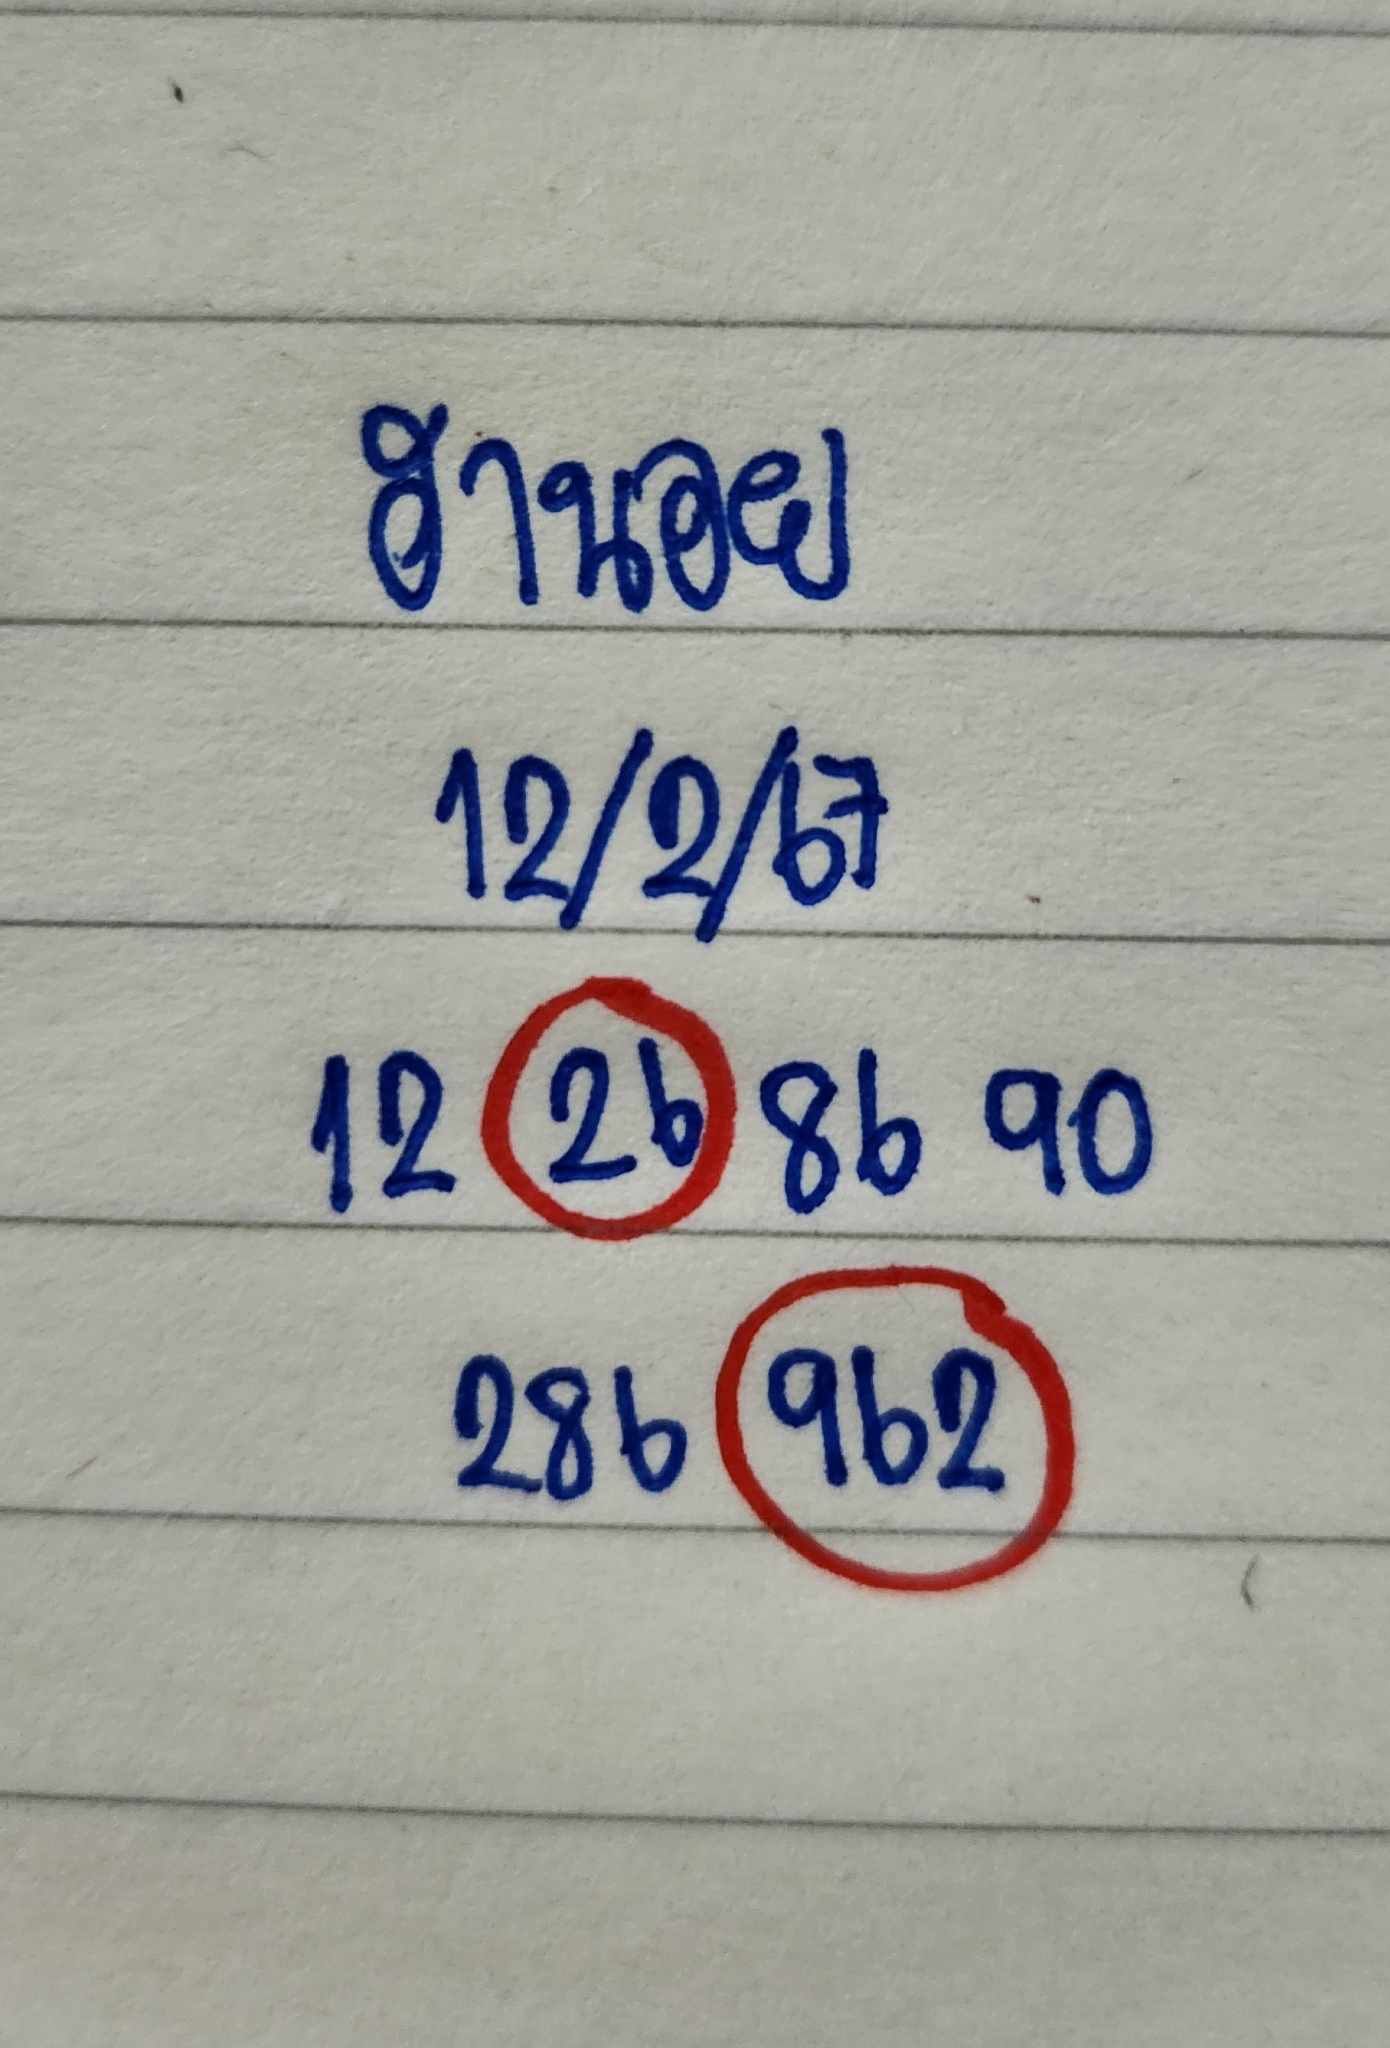 ฮานอย
12/2/67
12 26 86 90
286 962